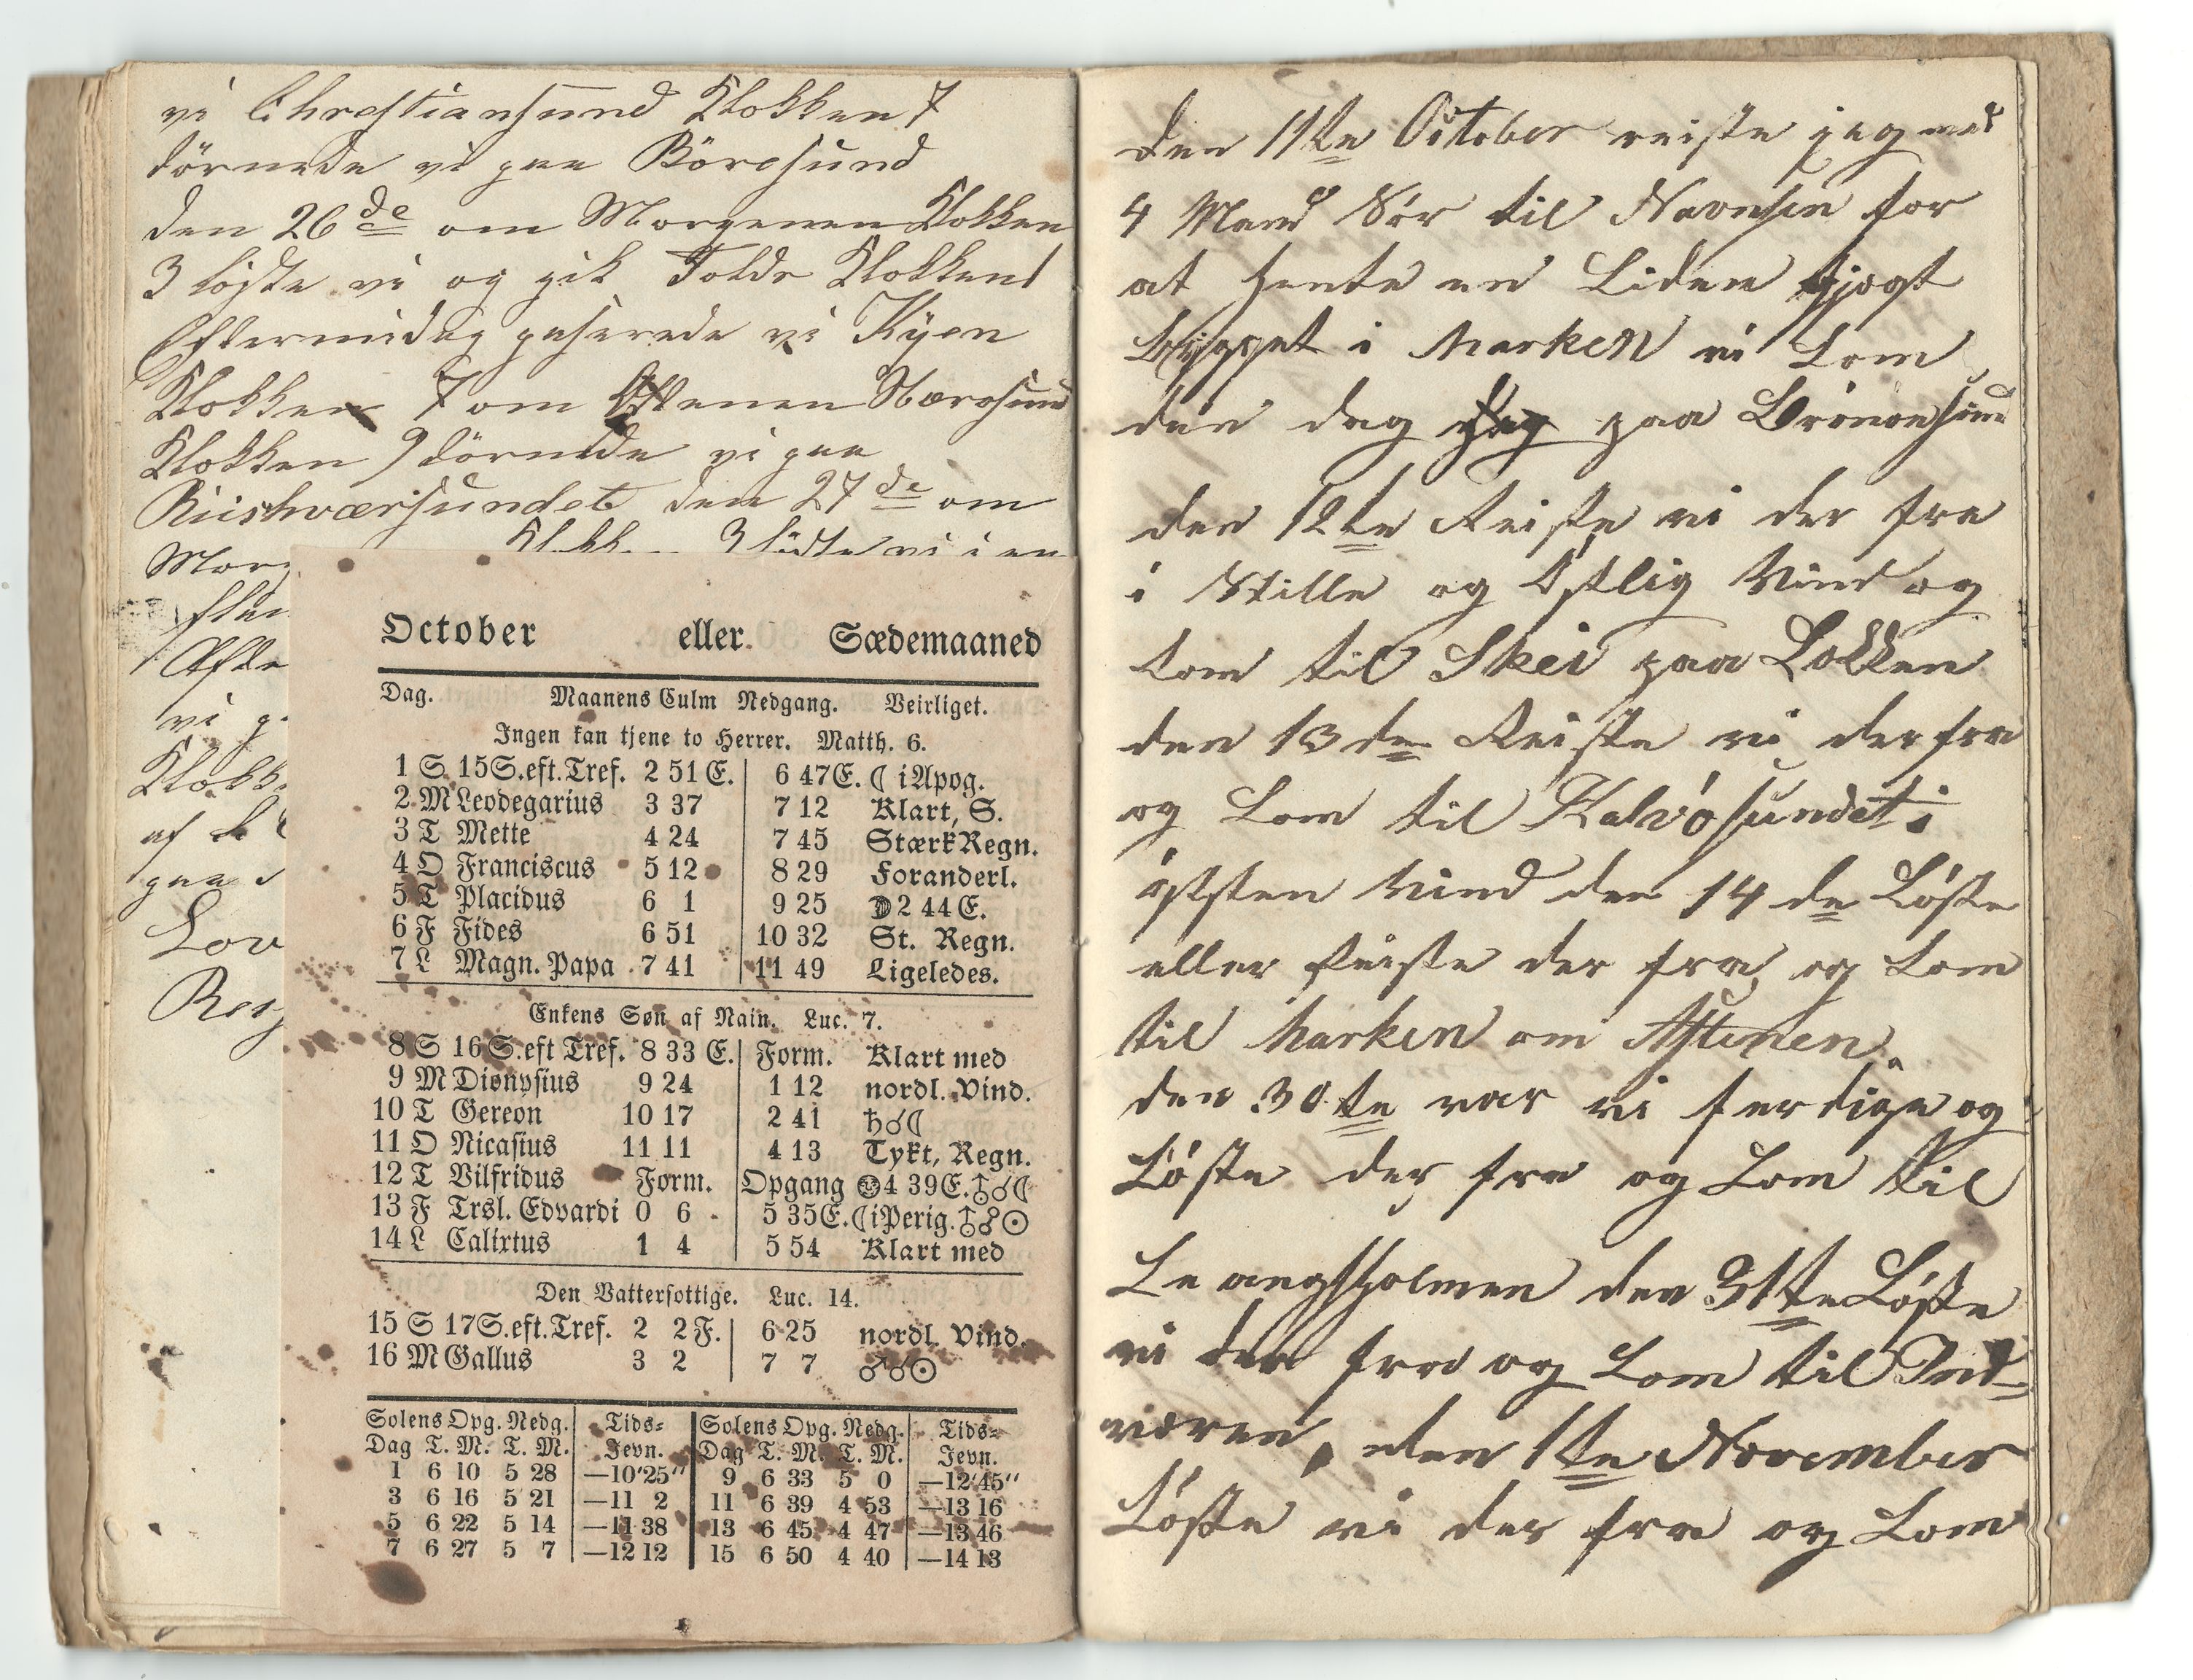 vi Christiansund Klokken 7
törnede vi paa Börøsund
den 26de om Morgenen Klokken
3 löste vi og gik Folde Klokken 1
Eftermidag paserede vi Kyen
Klokken 7 om Aftenen Nærøsund
Klokken 9 törnede vi paa
Riishværsundet den 27de om
Morg
Klokken 3 lödte vi i en
Efte
vi p
Klokk
af
paa
Lov
Rei
October eller Sædemaaned
Dag. Maanens Culm Nedgang. Veirliget.
Ingen kan tjene to Herrer. Matth. 6.
1 S 15S.eft.Tref. 2 51 E. 6 47E. ☾ i Apog.
2 M Leodegarius 3 37 7 12 Klart, S.
3 T Mette 4 24 7 45 Stærk Regn.
4 O Franciscus 5 12 8 29 Foranderl.
5 T Placidus 6 1 9 25 ☽ 2 44 E.
6 F Fides 6 51 10 32 St. Regn.
7 L Magn. Papa 7 41 11 49 Ligeledes.
Enkens Søn af Nain. Luc. 7.
8 S 16 S.eft Tref. 8 33 E. Form. Klart med
9 M Dionysius 9 24 1 12 nordl. Vind.
10 T Gereon 10 17 2 41 ♄☌☾
11 O Nicasius 11 11 4 13 Tykt, Regn.
12 T Vilfridus Form. Opgang 4 39E. ☌☾
13 F Trsl. Edvardi 0 6 5 35E. ☾ i Perig. ☍☉
14 L Calixtus 1 4 5 54 Klart med
Den Vattersottige. Luc. 14.
15 S 17S.eft.Tref. 2 2F. 6 25 nordl. Vind.
16 M Gallus 3 2 7 7 ♂☌☉
Solens Opg. Nedg. Tids= Solens Opg. Nedg. Tids=
Dag T. M. T. M. Jevn. Dag T. M. T. M. Jevn.
1 6 10 5 28 —10'25" 9 6 33 5 0 —12'45"
3 6 16 5 21 —11 2 11 6 39 4 53 —13 16
5 6 22 5 14 —11 38 13 6 45 4 47 —13 46
7 6 27 5 7 —12 12 15 6 50 4 40 —14 13
den 11te October reiste jeg med
4 Mand Sør til Navnsen for
at hente en Liden Jjogt
bygget i Marken vi kom
den dag paa Brönöesund
den 12te Reiste vi der fra
i Stille og Östlig Vind og
kom til Skei paa Lökken
den 13de Reiste vi der fra
og kom til Kalvösundet i
öststen Vind den 14de Löste
eller Reiste der fra og kom
til Marken om Aftenen.
den 30te var vi ferdige og
Löste der fra og kom til
Leangsholmen den 31te Löste
vi der fra og kom til Ind=
væren, den 1te November
Löste vi der fra og kom